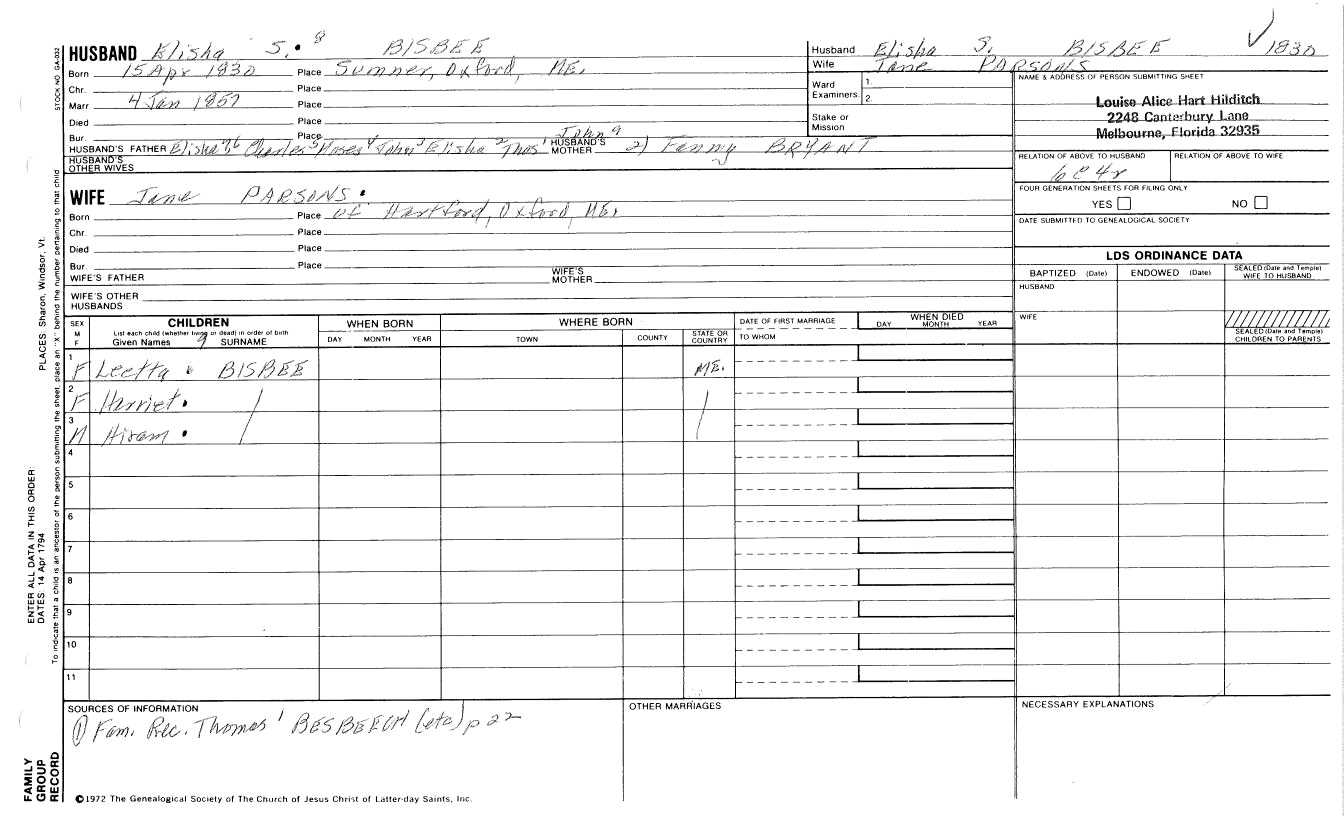 HUSBAND Elisha S. 8 BISBEE
Born 15 Apr 1830 Place Sumner, Oxford, ME.
Chr. Place
Marr 4 Jan 1857 Place
Died Place
Bur Place
HUSBAND'S FATHER Elisha 7 6 Charles 5 Moses 4 John 3 Elisha 2 Thos 1 HUSBAND'S MOTHER 2) Fanny BRYANT
HUSBAND'S OTHER WIVES
WIFE Jane PARSONS
Born Place of Hartford, Oxford, ME,
Chr. Place
Died Place
Bur. Place
WIFE'S FATHER WIFE'S MOTHER
WIFE'S OTHER HUSBANDS
Husband Elisha S. BISBEE 1830
Wife Jane PARSONS
Ward Examiners 1. 2.
Stake or Mission
NAME & ADDRESS OF PERSON SUBMITTING SHEET
Louise Alice Hart Hilditch
2248 Canterbury Lane
Melbourne, Florida 32935
RELATION OF ABOVE TO HUSBAND RELATION OF ABOVE TO WIFE
6c4r
FOUR GENERATION SHEETS FOR FILING ONLY
YES NO
DATE SUBMITTED TO GENEALOGICAL SOCIETY
LDS ORDINANCE DATA
BAPTIZED (Date) ENDOWED (Date) SEALED (Date and Temple) WIFE TO HUSBAND
HUSBAND
WIFE
SEALED (Date and Temple) CHILDREN TO PARENTS
SEX M F
CHILDREN
List each child (whether living or dead) in order of birth
Given Names 9 SURNAME
WHEN BORN
DAY MONTH YEAR
WHERE BORN
TOWN COUNTY STATE OR COUNTRY
DATE OF FIRST MARRIAGE
TO WHOM
WHEN DIED
DAY MONTH YEAR
1 F Leetta BISBEE ME.
2 F Harriet
3 M Hiram
4
5
6
7
8
9
10
11
SOURCES OF INFORMATION
① Fam. Rec. Thomas 1 BESBEECH (etc) p 22
OTHER MARRIAGES
NECESSARY EXPLANATIONS
©1972 The Genealogical Society of The Church of Jesus Christ of Latter-day Saints, Inc.
FAMILY GROUP RECORD
ENTER ALL DATA IN THIS ORDER:
DATES 14 Apr 1794
PLACES Sharon, Windsor, Vt.
To indicate that a child is an ancestor of the person submitting the sheet, place an "X" behind the number pertaining to that child
STOCK NO GA-002